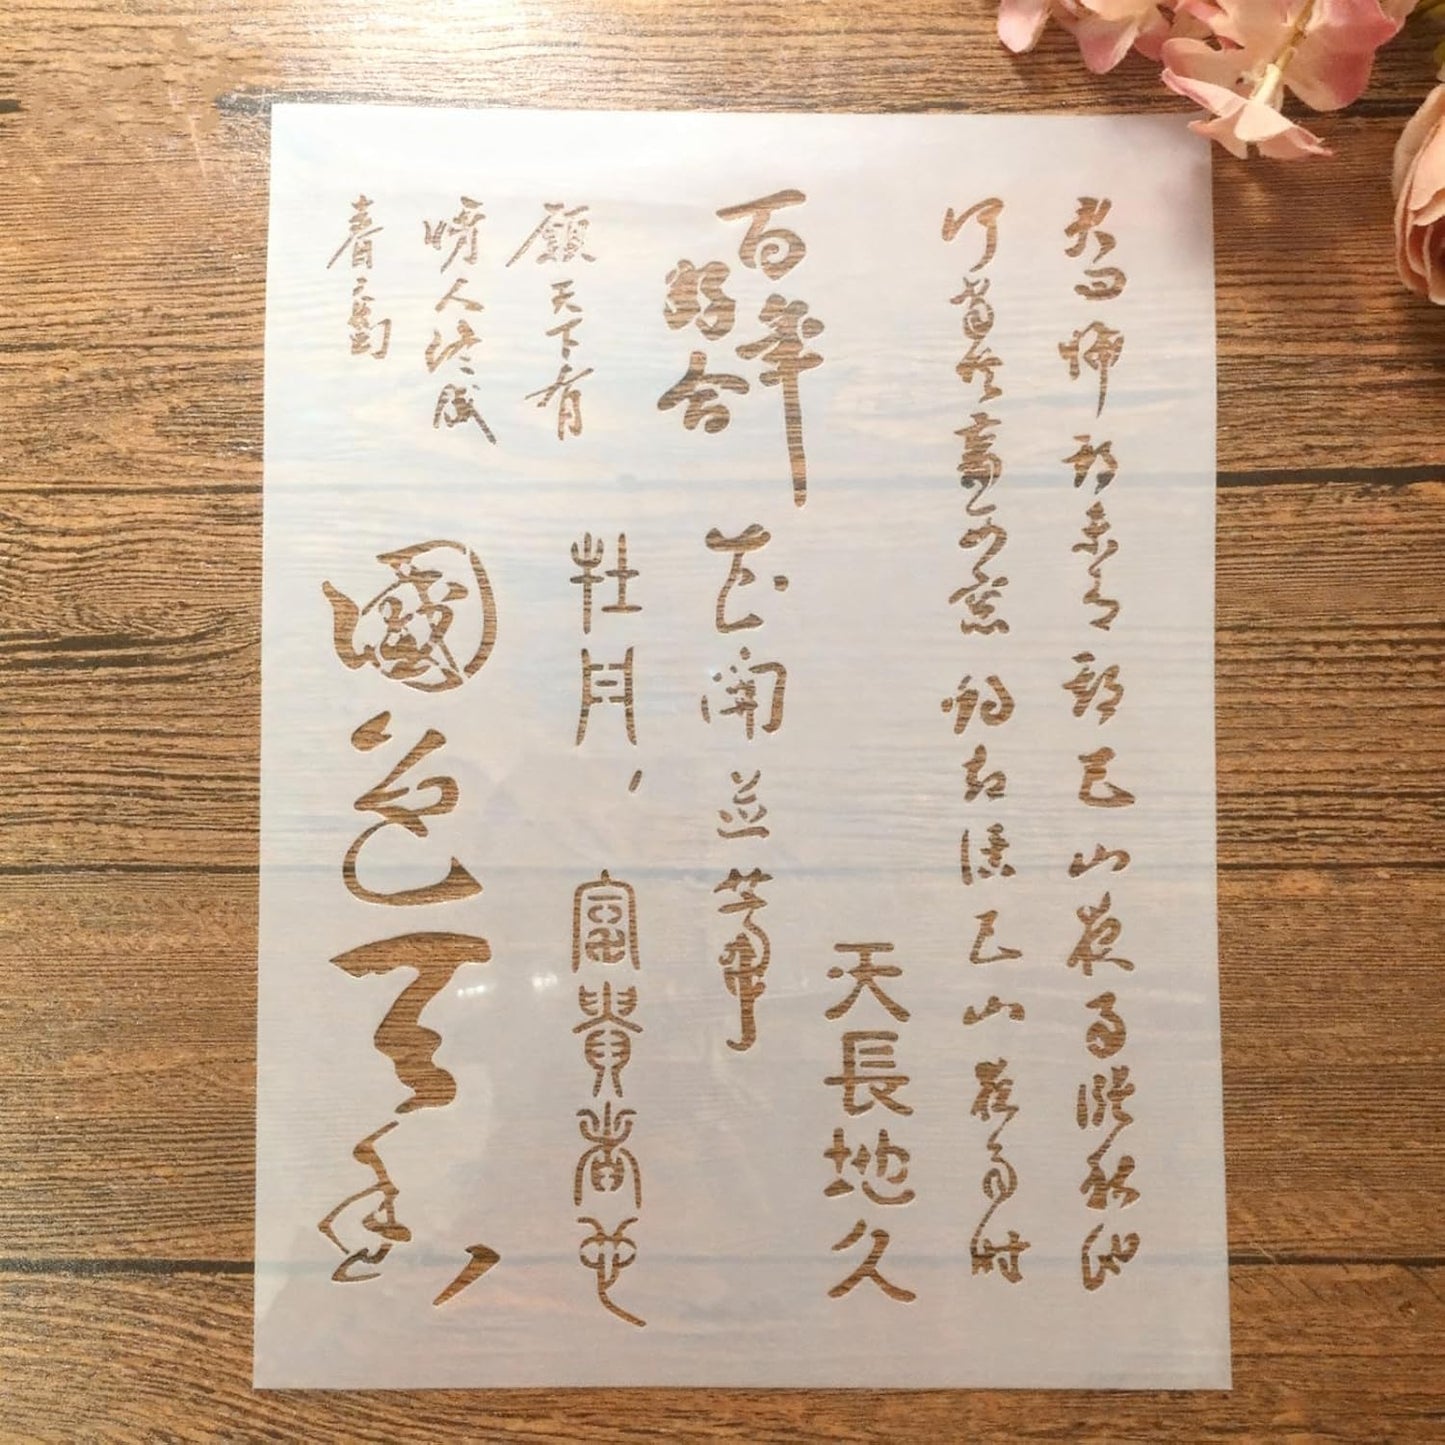 君問歸期未有期巴山夜雨漲秋池
何當共剪西窗燭却話巴山夜雨時
天長地久
百年
好合
花開並蒂
願天下有
情人終成
眷屬
牡丹，富貴者也
國色天香